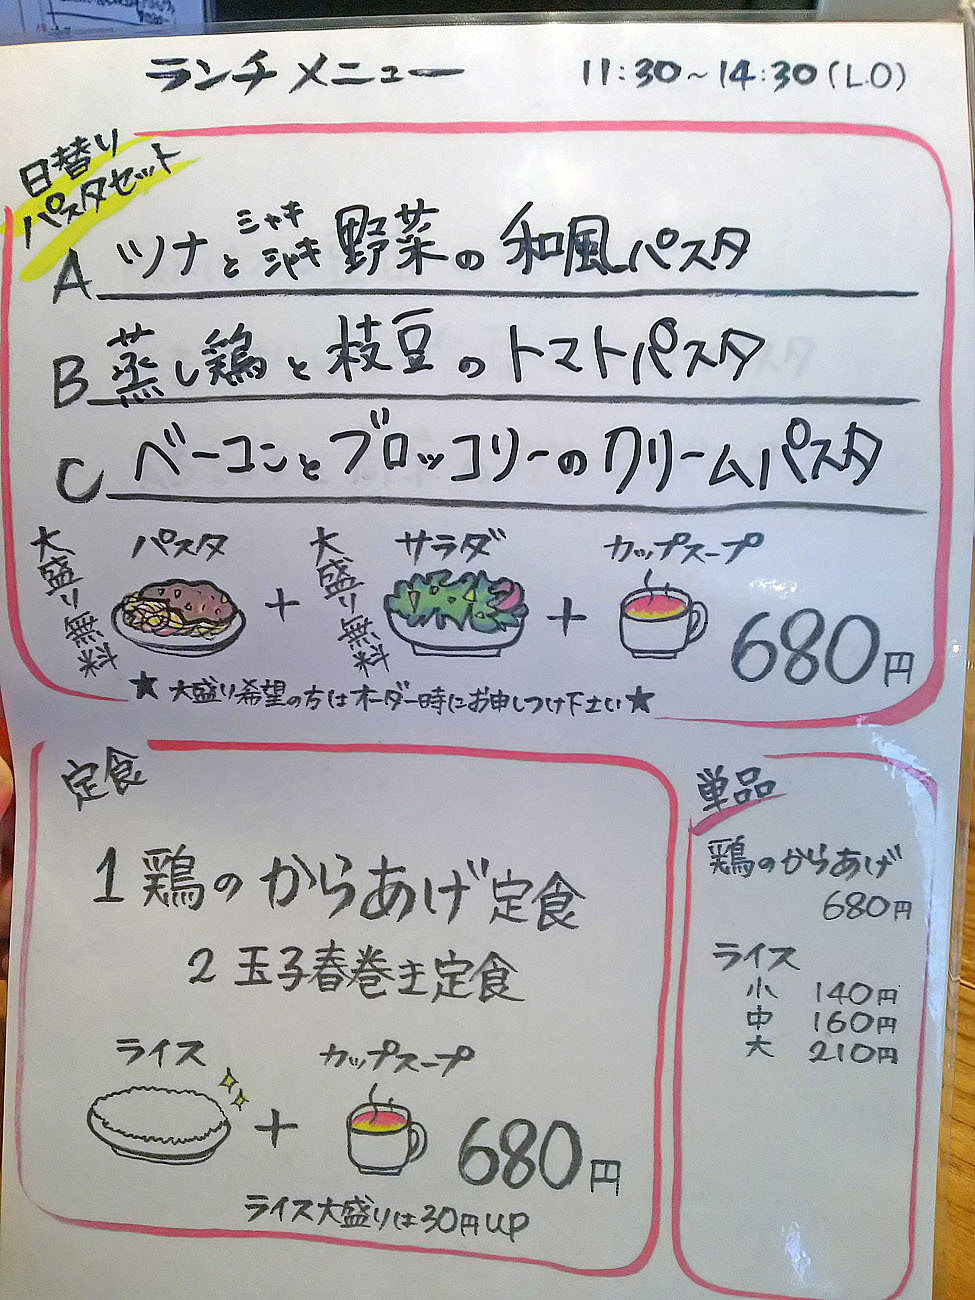 ランチメニュー 11:30~14:30(L.O)
日替り
パスタセット
A ツナとシャキシャキ野菜の和風パスタ
B 蒸し鶏と枝豆のトマトパスタ
C ベーコンとブロッコリーのクリームパスタ
大盛り無料 パスタ + 大盛り無料 サラダ + カップスープ 680円
★大盛り希望の方はオーダー時にお申しつけ下さい★
定食
1 鶏のからあげ定食
2 玉子春巻き定食
ライス + カップスープ 680円
ライス大盛りは30円UP
単品
鶏のからあげ
680円
ライス
小 140円
中 160円
大 210円